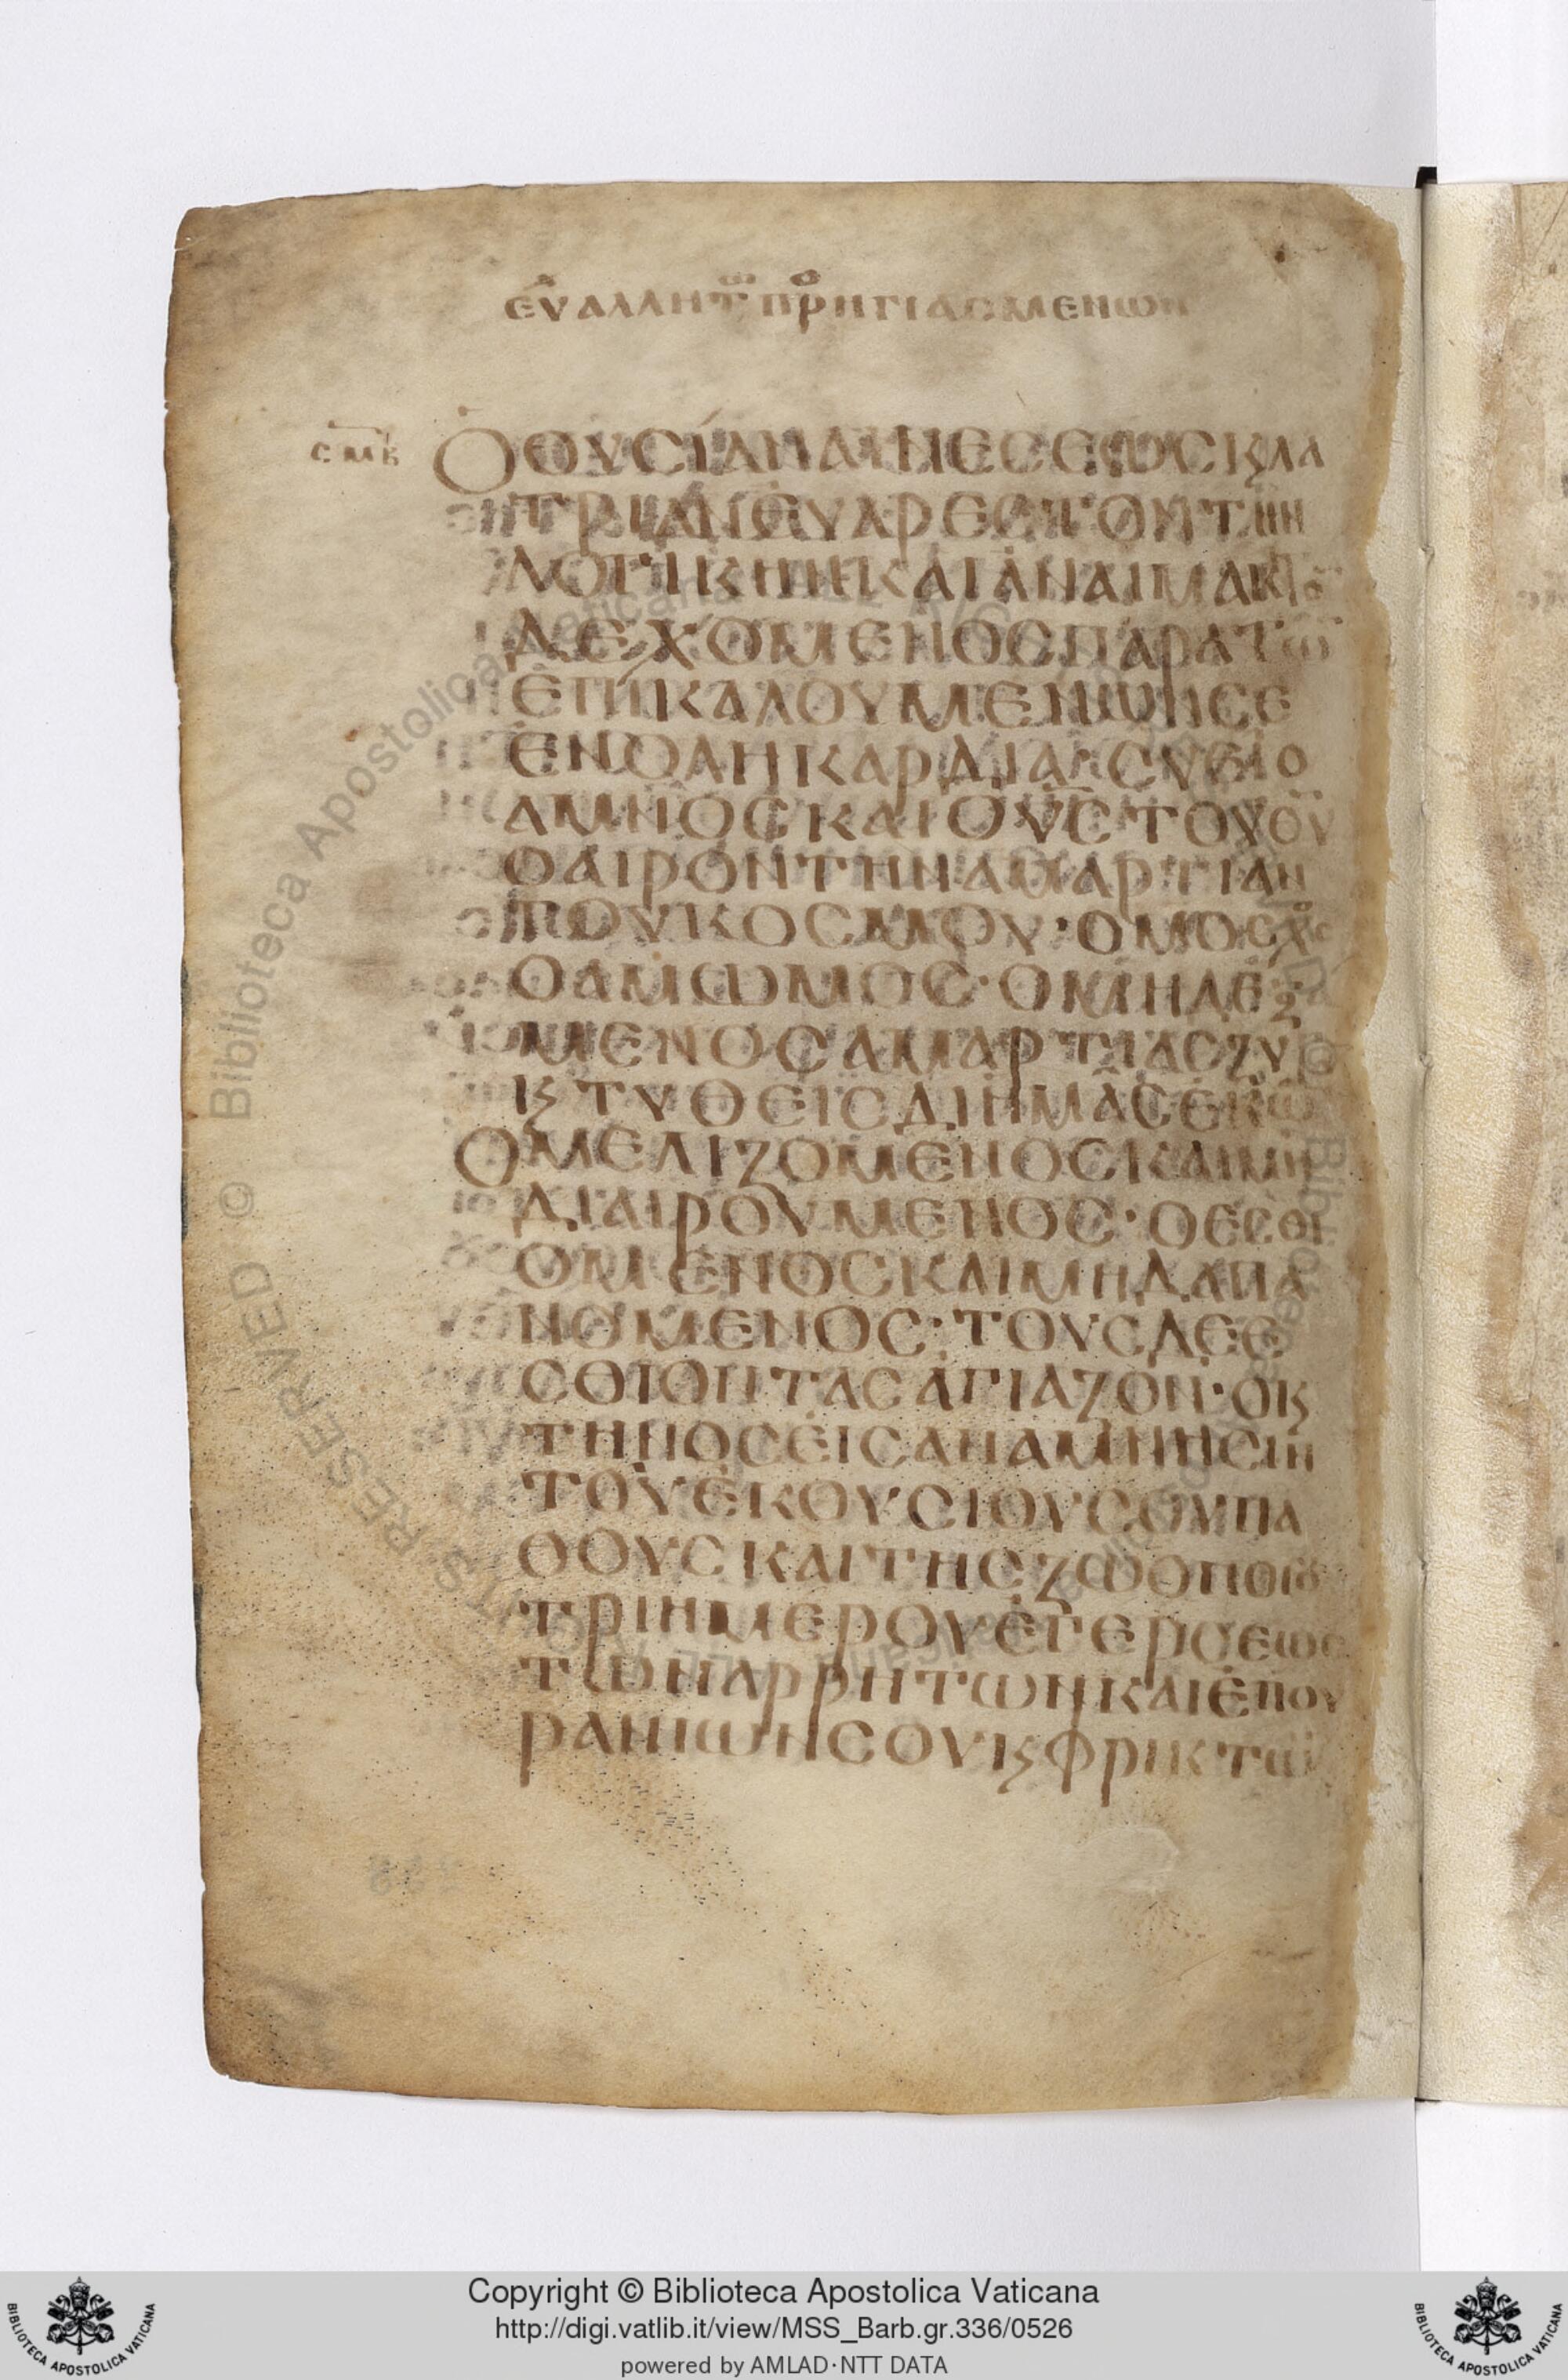 ΕΥ ΑΛΛΗ ΤΩ ΠΡΟΗΓΙΑΣΜΕΝΩΝ
ΣΜΒ Ο ΘΥΣΙΑΝ ΑΙΝΕΣΕΩΣ Ϗ ΛΑ
ΤΡΙΑΝ ΕΥΑΡΕΣΤΟΝ ΤΗΝ
ΛΟΓΙΚΗΝ ΚΑΙ ΑΝΑΙΜΑΚΤΟ
ΔΕΧΟΜΕΝΟΣ ΠΑΡΑ ΤΩ
ΕΠΙΚΑΛΟΥΜΕΝΩΝ ΣΕ
ΕΝ ΟΛΗ ΚΑΡΔΙΑ· ΣΥ ΕΙ Ο
ΑΜΝΟΣ ΚΑΙ Ο ΥΣ ΤΟΥ ΘΥ
Ο ΑΙΡΟΝ ΤΗΝ ΑΜΑΡΤΙΑΝ
ΤΟΥ ΚΟΣΜΟΥ· Ο ΜΟΣΧΟΣ
Ο ΑΜΩΜΟΣ· Ο ΜΗ ΔΕΞΑ
ΜΕΝΟΣ ΑΜΑΡΤΙΑΣ ΖΥΓΟ
Ϗ ΤΥΘΕΙΣ ΔΙ ΗΜΑΣ ΕΚΩ
Ο ΜΕΛΙΖΟΜΕΝΟΣ ΚΑΙ ΜΗ
ΔΙΑΙΡΟΥΜΕΝΟΣ· Ο ΕΣΘΙ
ΟΜΕΝΟΣ ΚΑΙ ΜΗ ΔΑΠΑ
ΝΟΜΕΝΟΣ· ΤΟΥΣ ΔΕ Ε
ΣΘΙΟΝΤΑΣ ΑΓΙΑΖΟΝ· Ο Ϗ
ΤΗΝΟΣ ΕΙΣ ΑΝΑΜΝΗΣΙΝ
ΤΟΥ ΕΚΟΥΣΙΟΥ ΣΟΥ ΠΑ
ΘΟΥΣ ΚΑΙ ΤΗΣ ΖΩΟΠΟΙΟΥ
ΤΡΙΗΜΕΡΟΥ ΕΓΕΡΣΕΩΣ
ΤΩΝ ΑΡΡΗΤΩΝ ΚΑΙ ΕΠΟΥ
ΡΑΝΙΩΝ ΣΟΥ Ϗ ΦΡΙΚΤΩΝ
Biblioteca Apostolica Vaticana
Copyright © Biblioteca Apostolica Vaticana
http://digi.vatlib.it/view/MSS_Barb.gr.336/0526
powered by AMLAD·NTT DATA
BIBLIOTECA APOSTOLICA VATICANA
BIBLIOTECA APOSTOLICA VATICANA